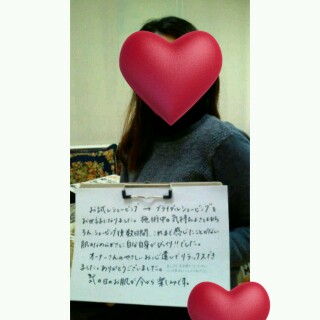 お試しシェービング → ブライダルシェービングを
お世話になりました。施術中の気持ちよさもさることながら
シェービング後数日間、これまで感じたことのない
肌のやわらかさに自分自身がびっくり!!でした。
オーナーさんのやさしいお心遣いでリラックスでき
ました。ありがとうございました。
式の日のお肌が今から楽しみです。